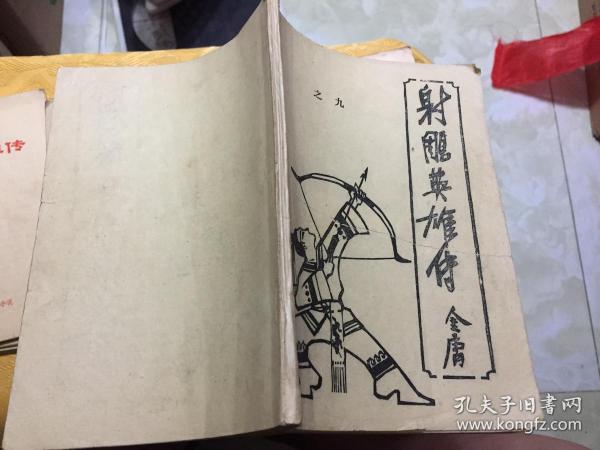 射雕英雄传
金庸
之九
传
孔夫子旧書网
www.kongfz.com